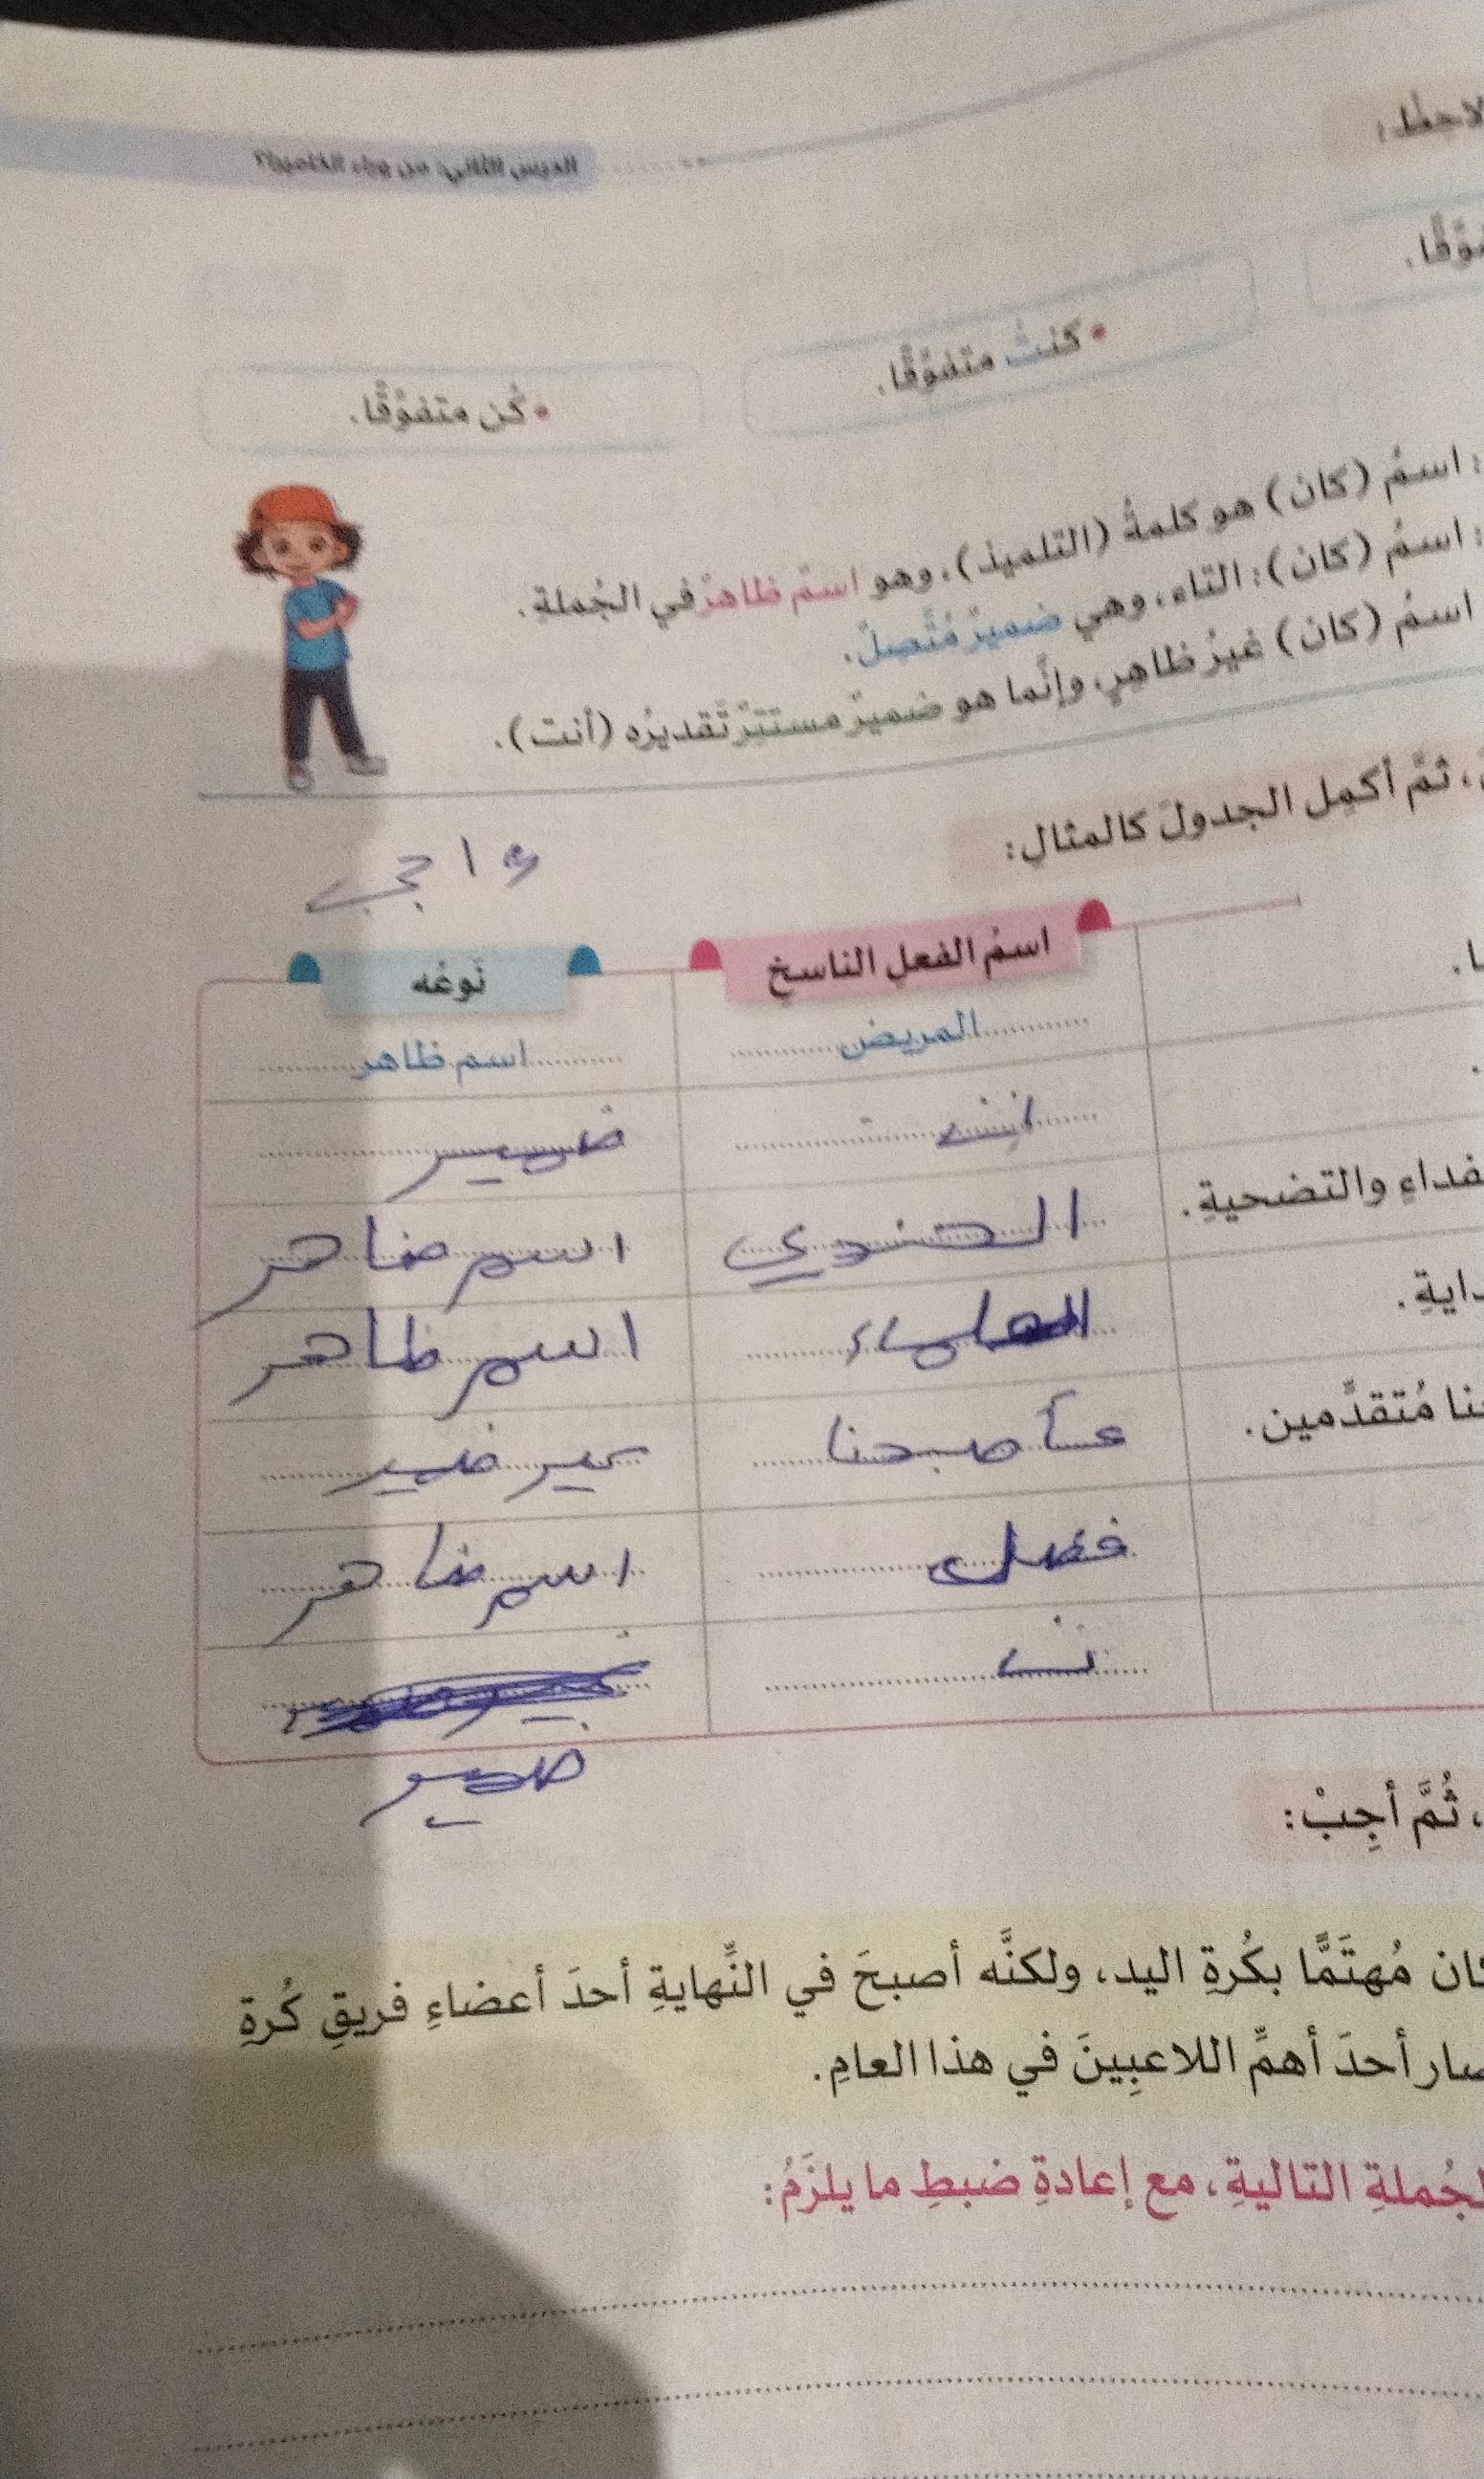 الدرس الثاني: من وراء الكاميرا؟
لاحظ:
• كنتُ متفوِّقًا.
• كُن متفوِّقًا.
: اسمُ (كان) هو كلمةُ (التلميذ)، وهو اسمٌ ظاهرٌ في الجُملةِ.
: اسمُ (كان): التاء، وهي ضميرٌ مُتَّصِلٌ.
اسمُ (كان) غيرُ ظاهِرٍ، وإنَّما هو ضميرٌ مستتِرٌ تَقديرُه (أنت).
، ثمَّ أكمِل الجدولَ كالمثالِ:
واجب
اسمُ الفعل الناسخِ
نَوعُه
المريض
اسم ظاهر
ضمير
فداءِ والتضحيةِ.
الجندي
اسم ضاهر
دايةِ.
العلماء
اسم ظاهر
نا مُتقدِّمين.
أصبحنا
ضمير
فصل
اسم ضاهر
ضمير
، ثُمَّ أجِبْ:
كان مُهتَمًّا بكُرةِ اليد، ولكنَّه أصبحَ في النِّهايةِ أحدَ أعضاءِ فريقِ كُرةِ
صار أحدَ أهمِّ اللاعبِينَ في هذا العامِ.
لجُملةِ التاليةِ، مع إعادةِ ضبطِ ما يلزَمُ: